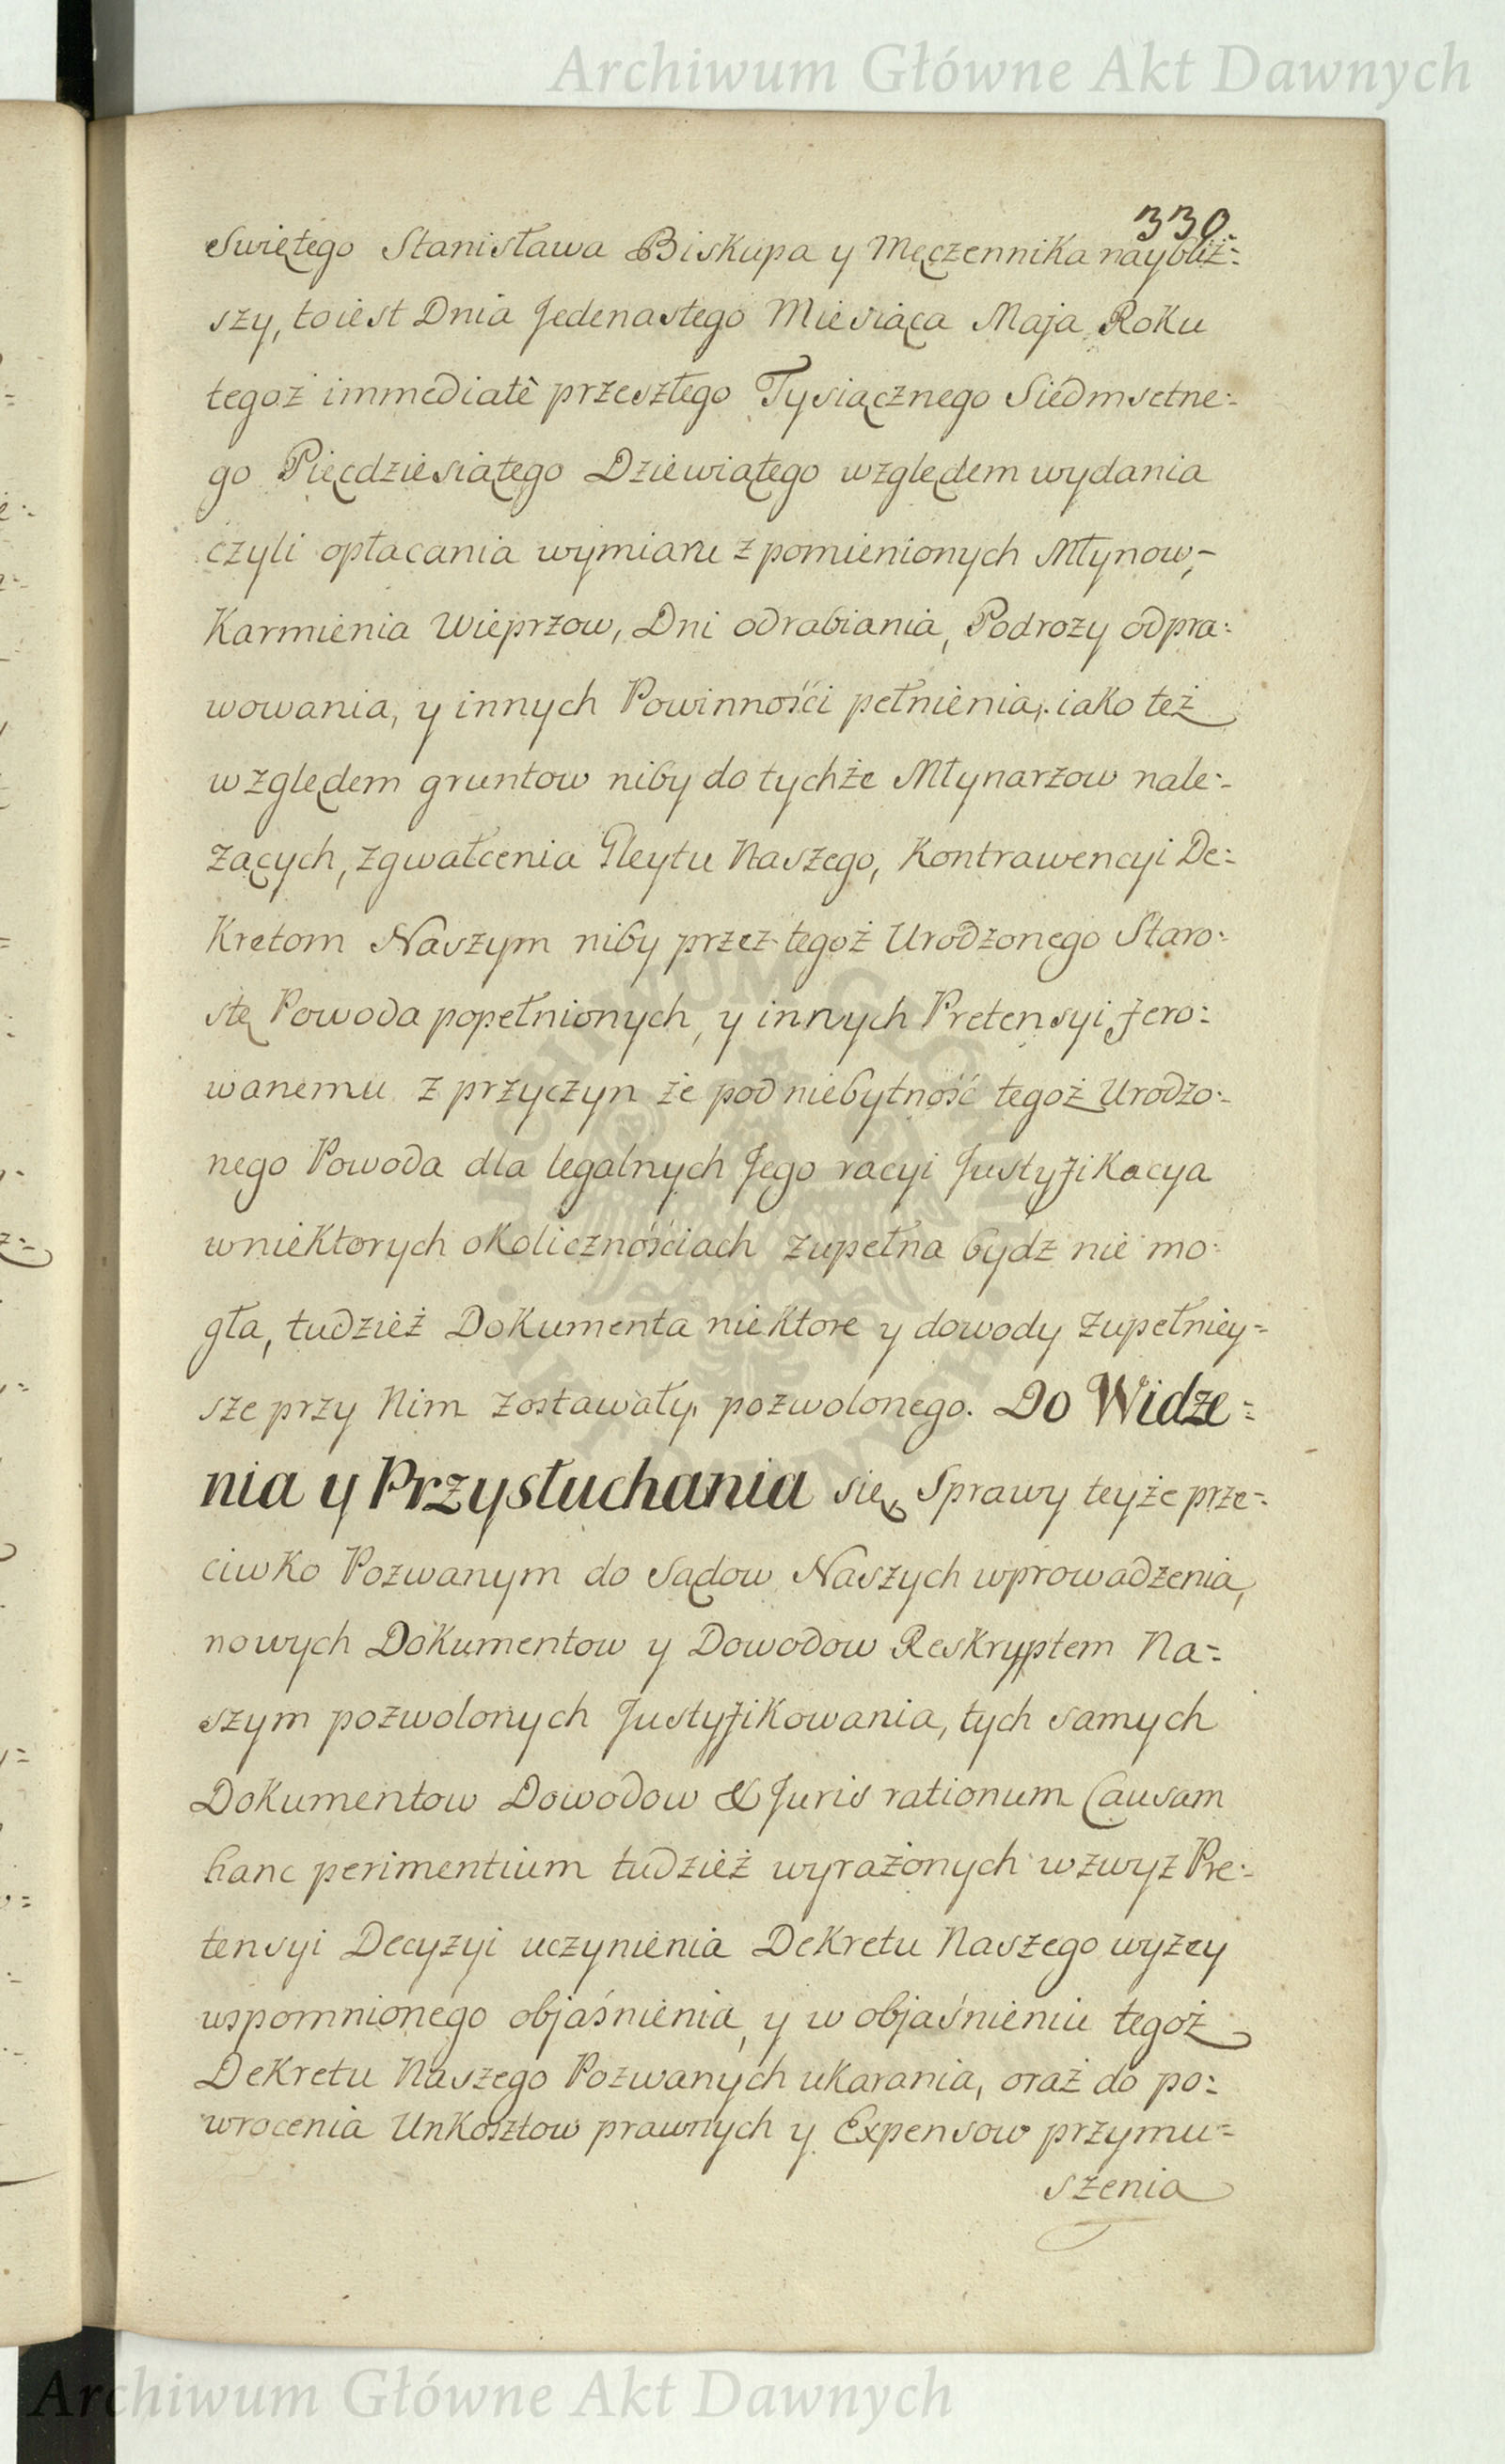 Archiwum Główne Akt Dawnych
330.
Swiętego Stanisława Biskupa y Męczennika naybliż=
szy, toiest Dnia Jedenastego Miesiąca Maja Roku
tegoż immediatê przeszłego Tysiącznego Siedmsetne=
go Pięcdziesiątego Dziewiątego względem wydania
czyli opłacania wymiaru z pomienionych Młynow,-
Karmienia Wieprzow, Dni odrabiania, Podrozy odpra=
wowania, y innych Powinności pełnienia, iako też
względem gruntow niby do tychże Młynarzow nale=
żących, zgwałcenia Gleytu Naszego, Kontrawencyi De=
Kretom Naszym niby przez tegoż Urodzonego Staro=
stę Powoda popełnionych, y innych Pretensyi fero=
wanemu z przyczyn że pod niebytność tegoż Urodzo=
nego Powoda dla legalnych Jego racyi Justyfikacya
w niektorych okolicznościach zupełna bydz nie mo=
gła, tudzież Dokumenta niektore y dowody zupełniey=
sze przy Nim zostawały, pozwolonego. Do Widze=
nia y Przysłuchania się Sprawy teyże prze=
ciwko Pozwanym do Sądow Naszych wprowadzenia,
nowych Dokumentow y Dowodow Reskryptem Na=
szym pozwolonych Justyfikowania, tych samych
Dokumentow Dowodow & Juris rationum Causam
hanc perimentium tudzież wyrażonych wzwyz Pre=
tensyi Decyzyi uczynienia Dekretu Naszego wyżey
wspomnionego objaśnienia, y w objaśnieniu tegoż
Dekretu Naszego Pozwanych ukarania, oraz do po=
wrocenia Unkosztow prawnych y Expensow przymu=
szenia
Archiwum Główne Akt Dawnych